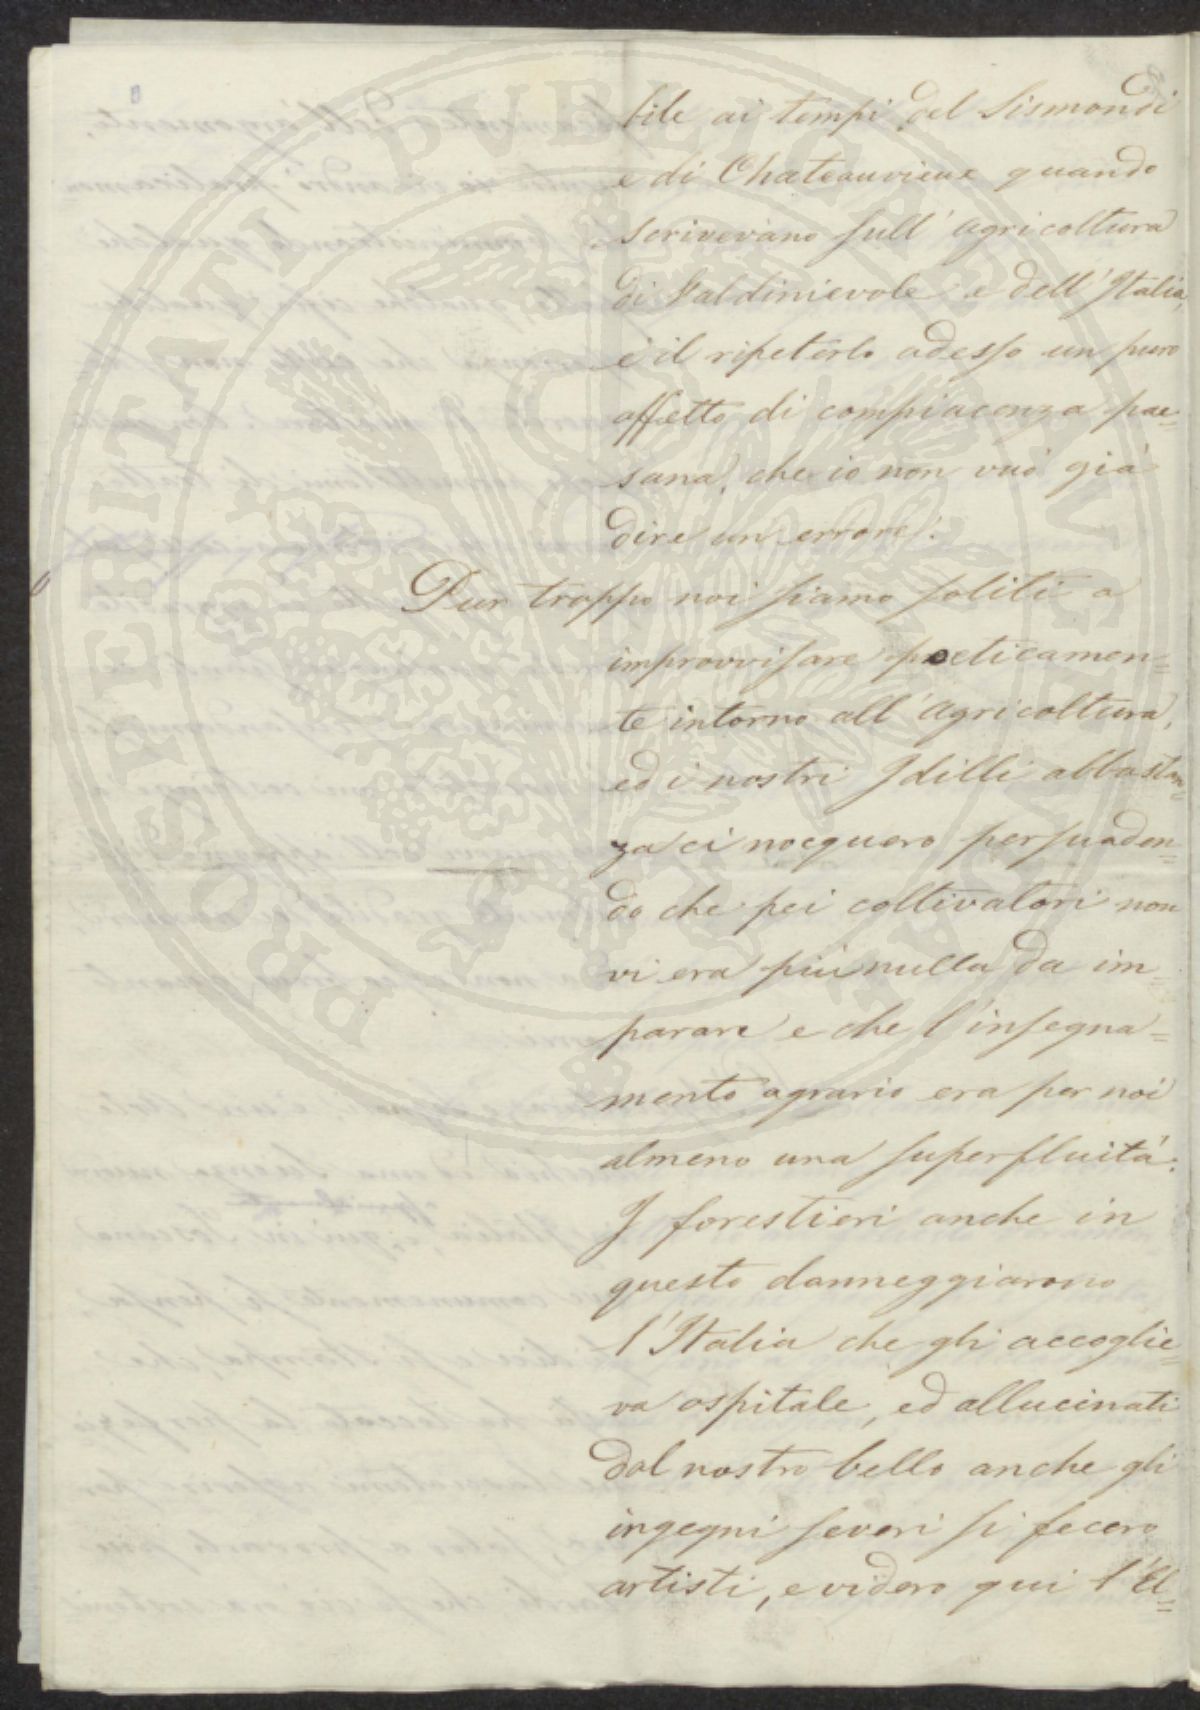 bile ai tempi del Sismondi
e di Chateauvieux quando
scrivevano sull' agricoltura
di Valdinievole e dell' Italia,
è il ripeterlo adesso un puro
affetto di compiacenza pae=
sana, che io non vuò già
dire un errore.
Pur troppo noi siamo soliti a
improvvisare poeticamen=
te intorno all' agricoltura,
ed i nostri Idilli abbastan=
za ci nocquero persuaden=
do che pei coltivatori non
vi era più nulla da im=
parare e che l'insegna=
mento agrario era per noi
almeno una superfluità.
I forestieri anche in
questo danneggiarono
l'Italia che gli accoglie=
va ospitale, ed allucinati
dal nostro bello anche gli
ingegni severi si fecero
artisti, e videro qui l'El=
PROSPERITATI PUBLICAE AUGENDAE